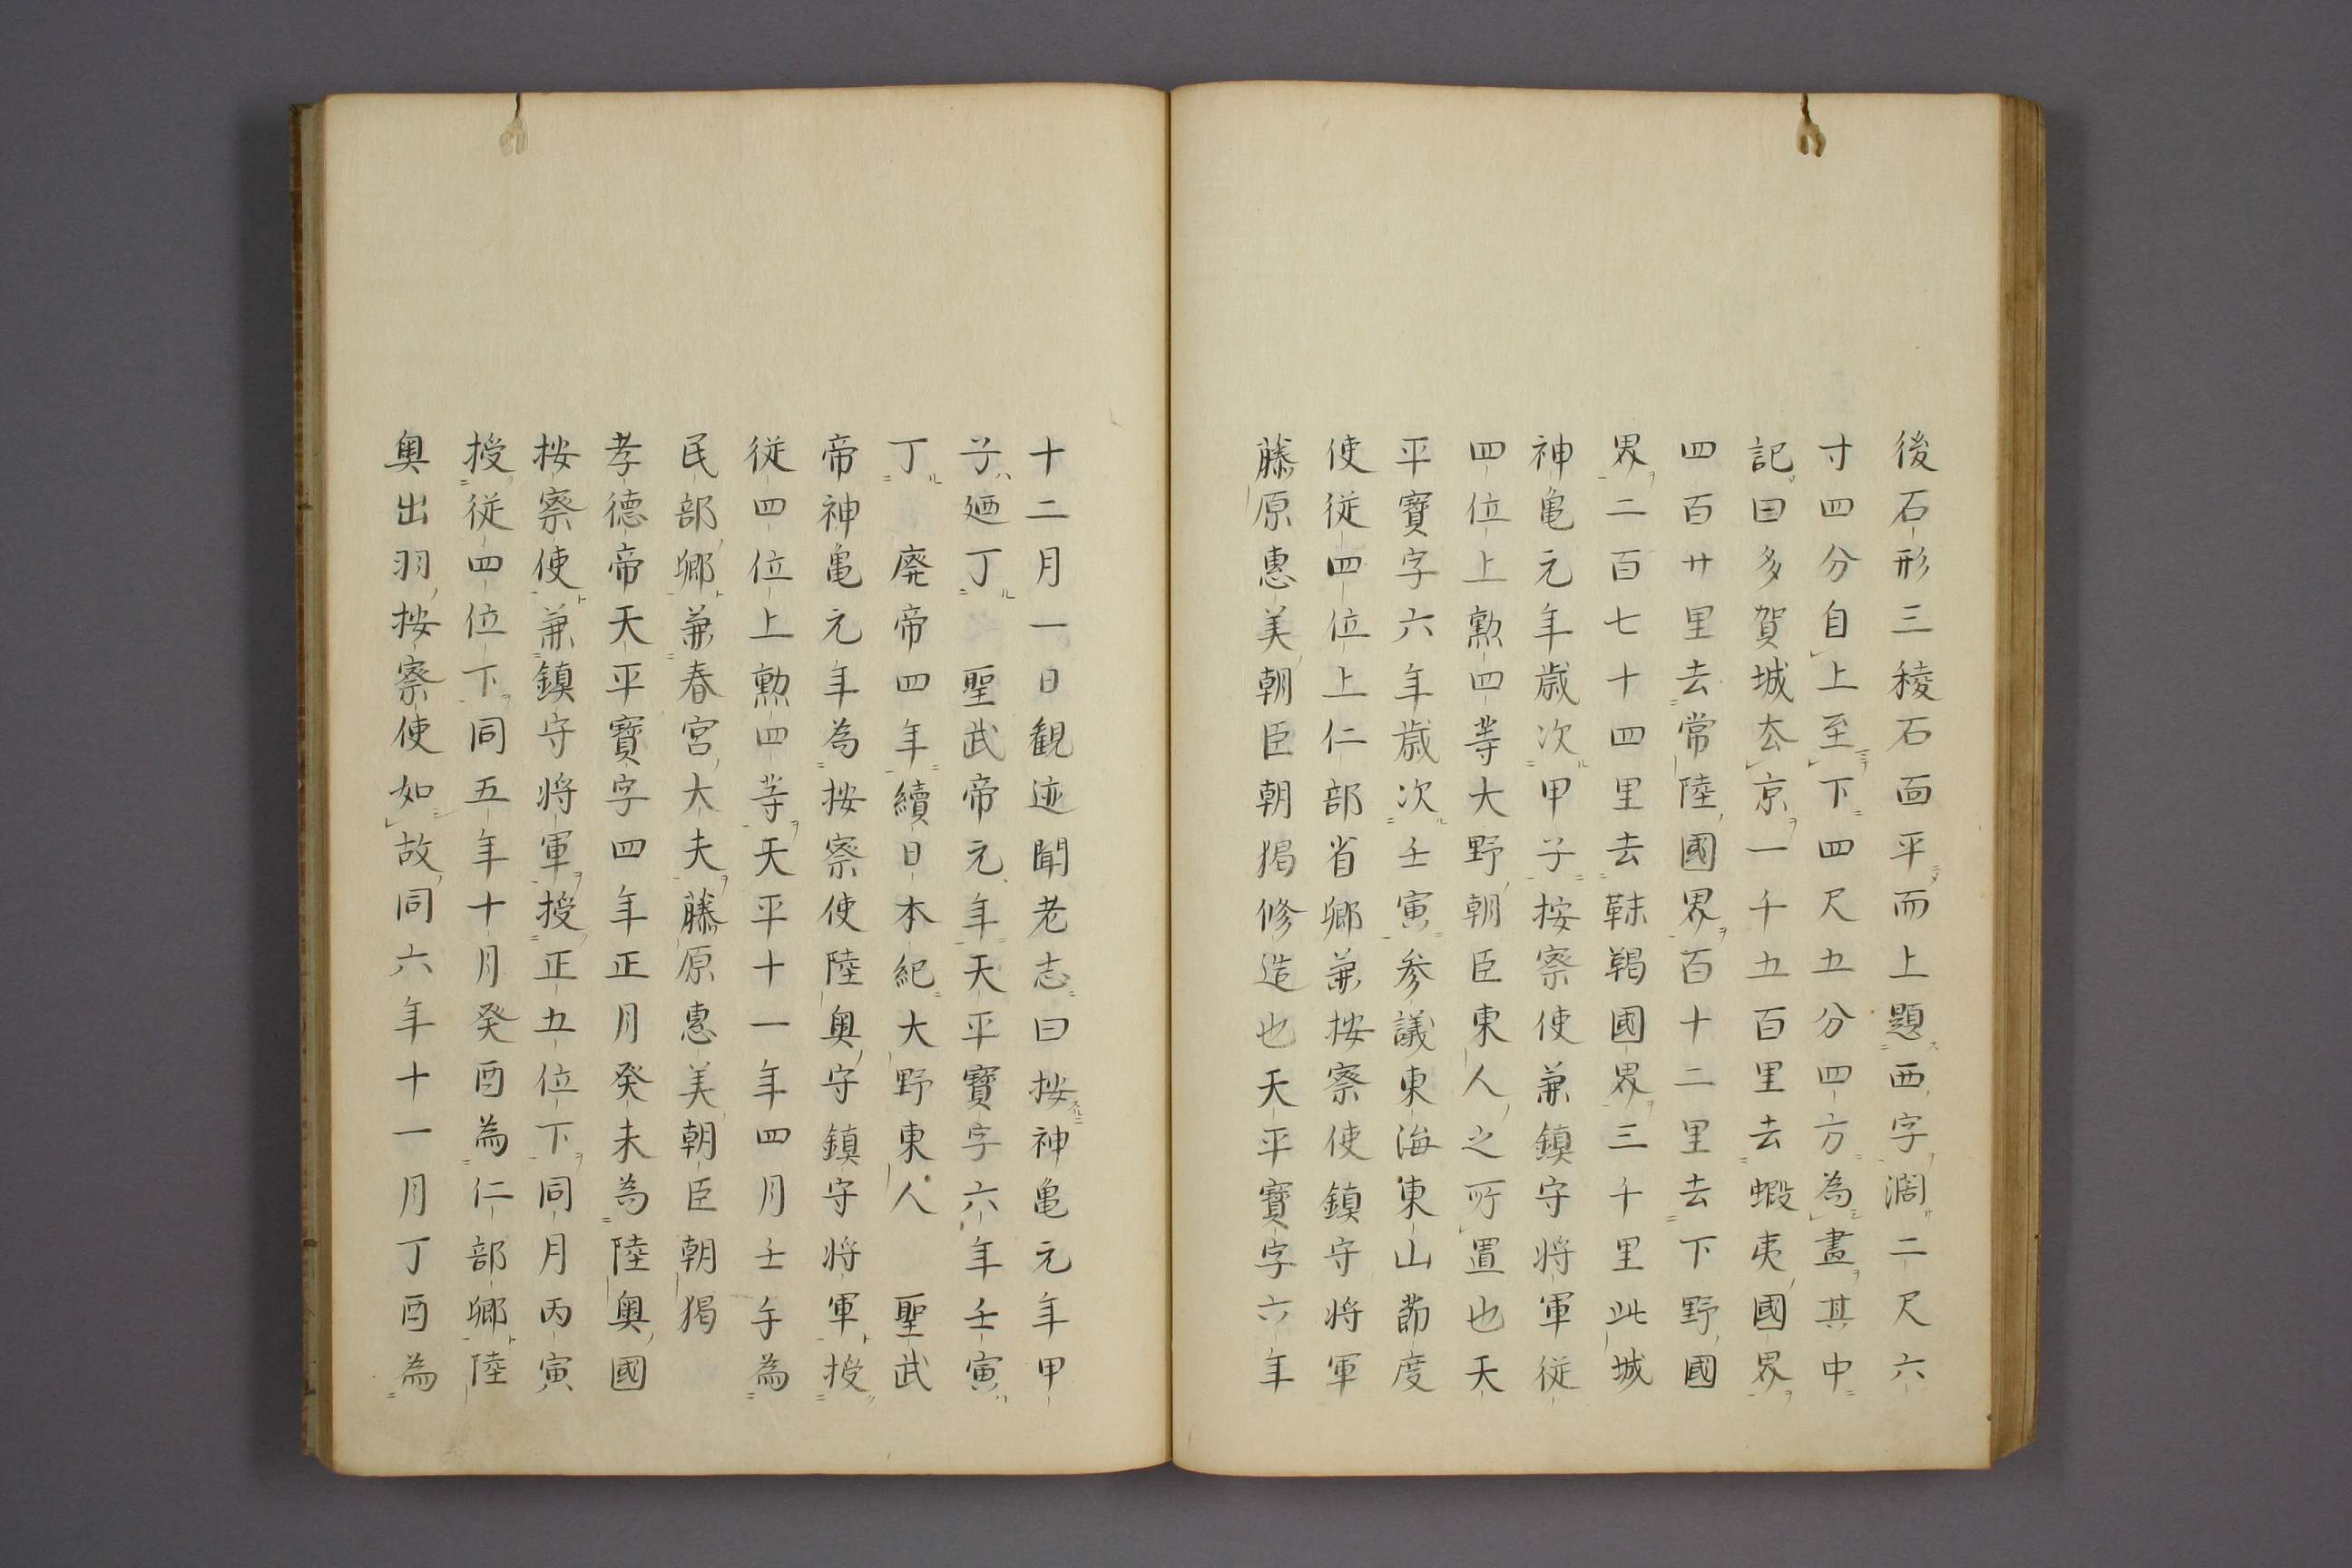 後石形三稜石面平而上題西字濶二尺六
寸四分自上至下四尺五分四方為畫其中
記曰多賀城去京一千五百里去蝦夷國界
四百廿里去常陸國界百十二里去下野國
界二百七十四里去靺鞨國界三千里此城
神亀元年歳次甲子按察使兼鎮守将軍従
四位上勲四等大野朝臣東人之所置也天
平寶字六年歳次壬寅参議東海東山節度
使従四位上仁部省卿兼按察使鎮守将軍
藤原惠美朝臣朝獦修造也天平寶字六年
十二月一日観迹聞老志曰按神亀元年甲
子廼丁聖武帝元年天平寶字六年壬寅
丁廃帝四年續日本紀大野東人聖武
帝神亀元年為按察使陸奥守鎮守将軍授
従四位上勲四等天平十一年四月壬午為
民部卿兼春宮大夫藤原惠美朝臣朝獦
孝德帝天平寶字四年正月癸未為陸奥國
按察使兼鎮守将軍授正五位下同月丙寅
授従四位下同五年十月癸酉為仁部卿陸
奥出羽按察使如故同六年十一月丁酉為